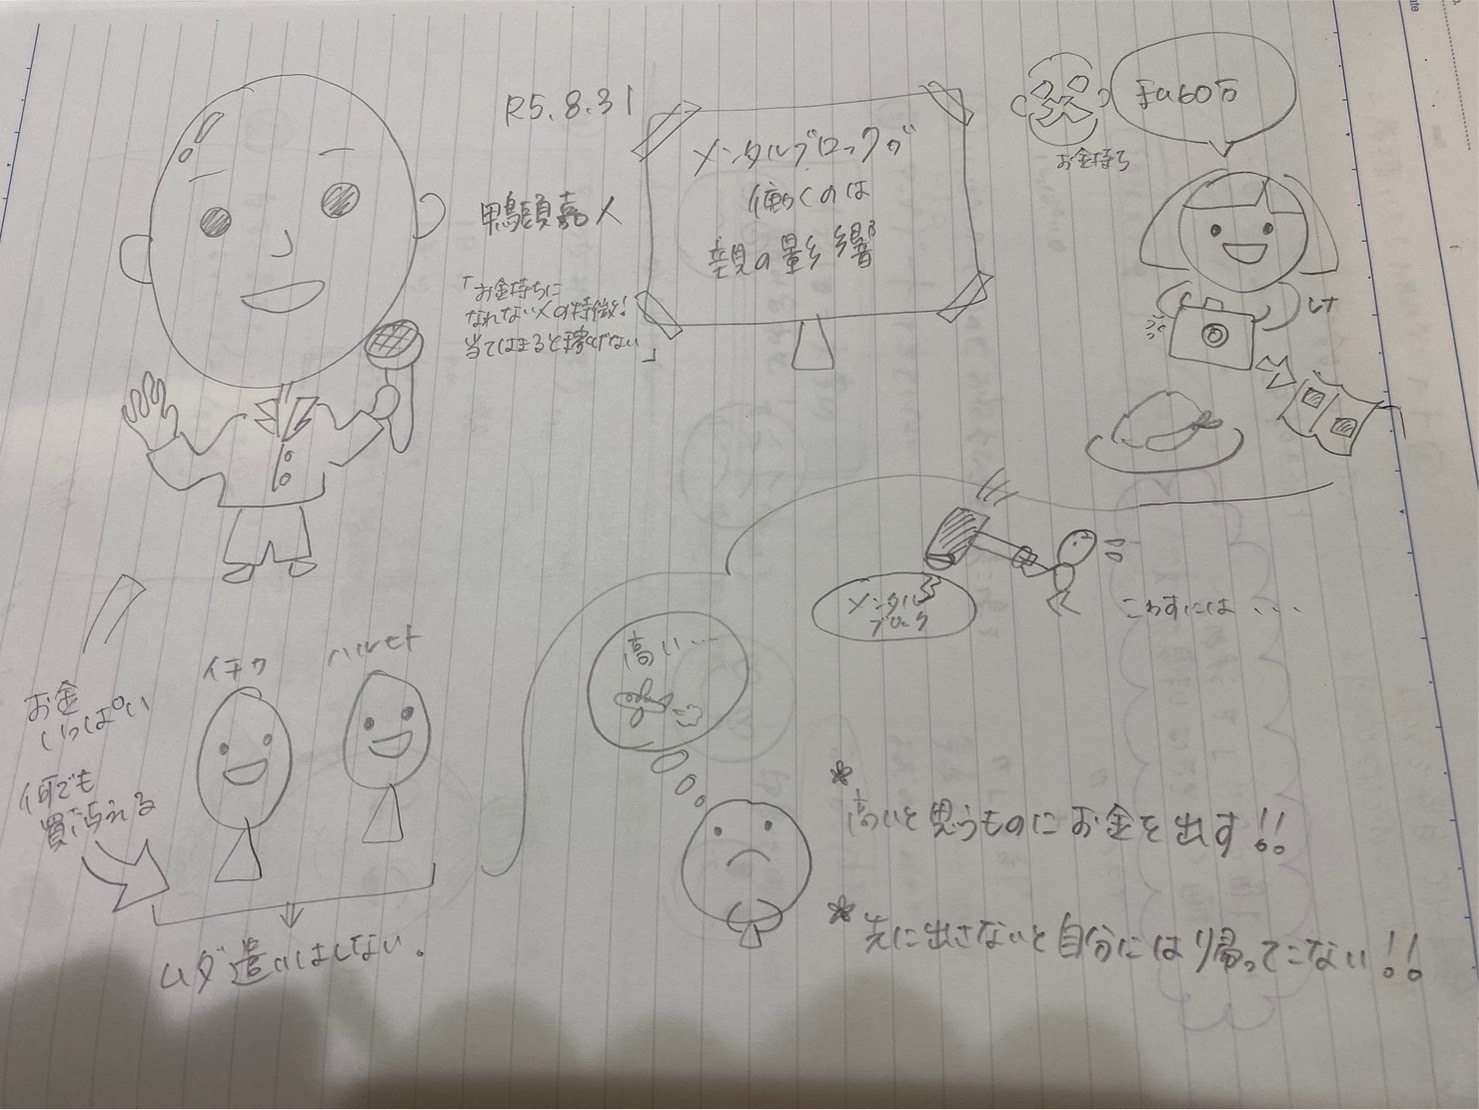 R5.8.31
鴨頭嘉人
「お金持ちに
なれない人の特徴!
当てはまると稼げない」
メンタルブロックが
働くのは
親の影響
お金持ち
60万
お金
いっぱい
何でも
買え与える
イチク
ハルヒト
ムダ遣いはしない。
メンタル
ブロック
こわすには...
高い...
*高いと思うものにお金を出す!!
*先に出さないと自分には帰ってこない!!